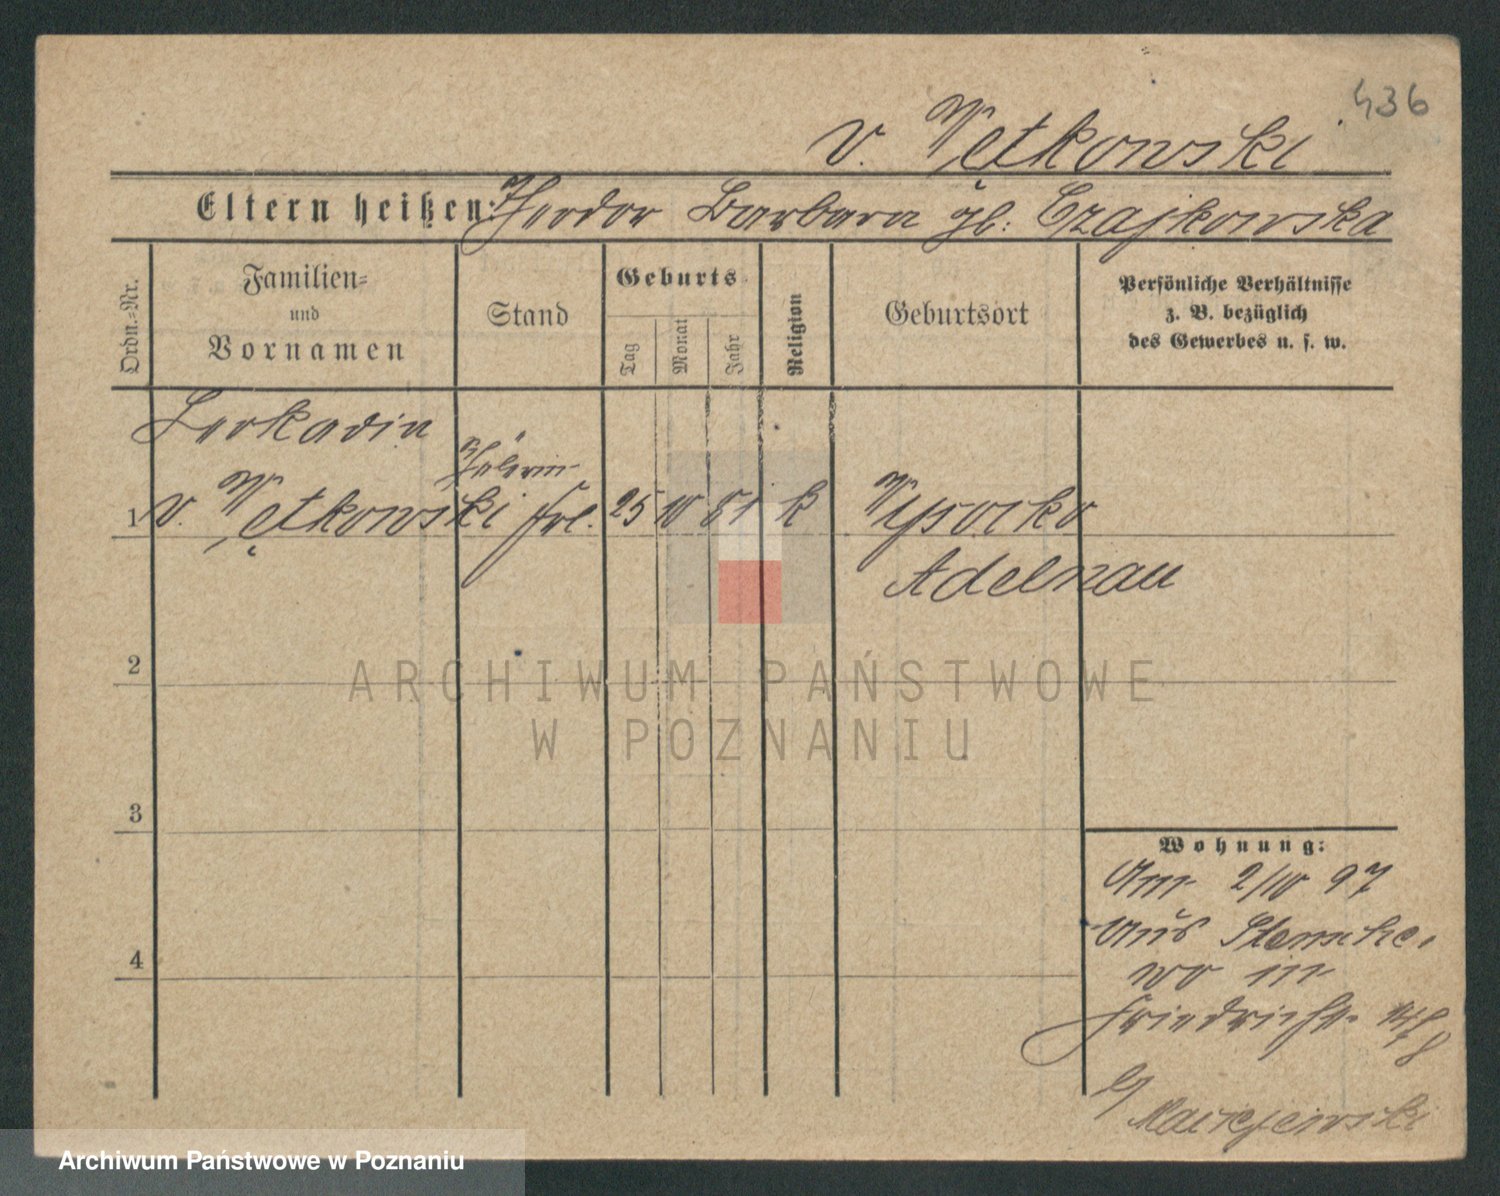 436
v. Wętkowski
Eltern heißen: Theodor Barbara gb: Czajkowska
Ordn.-Nr.
Familien-
und
Vornamen
Stand
Geburts
Tag
Monat
Jahr
Religion
Geburtsort
Persönliche Verhältnisse
z. B. bezüglich
des Gewerbes u. s. w.
1 v. Wętkowski Frl. 25 10 81 k Wysocko
Adelnau
2
3
4
Wohnung:
Am 2/10 97
Aus
wo in
Friedrichstr.
b/
Maciejewski
ARCHIWUM PAŃSTWOWE
W POZNANIU
Archiwum Państwowe w Poznaniu